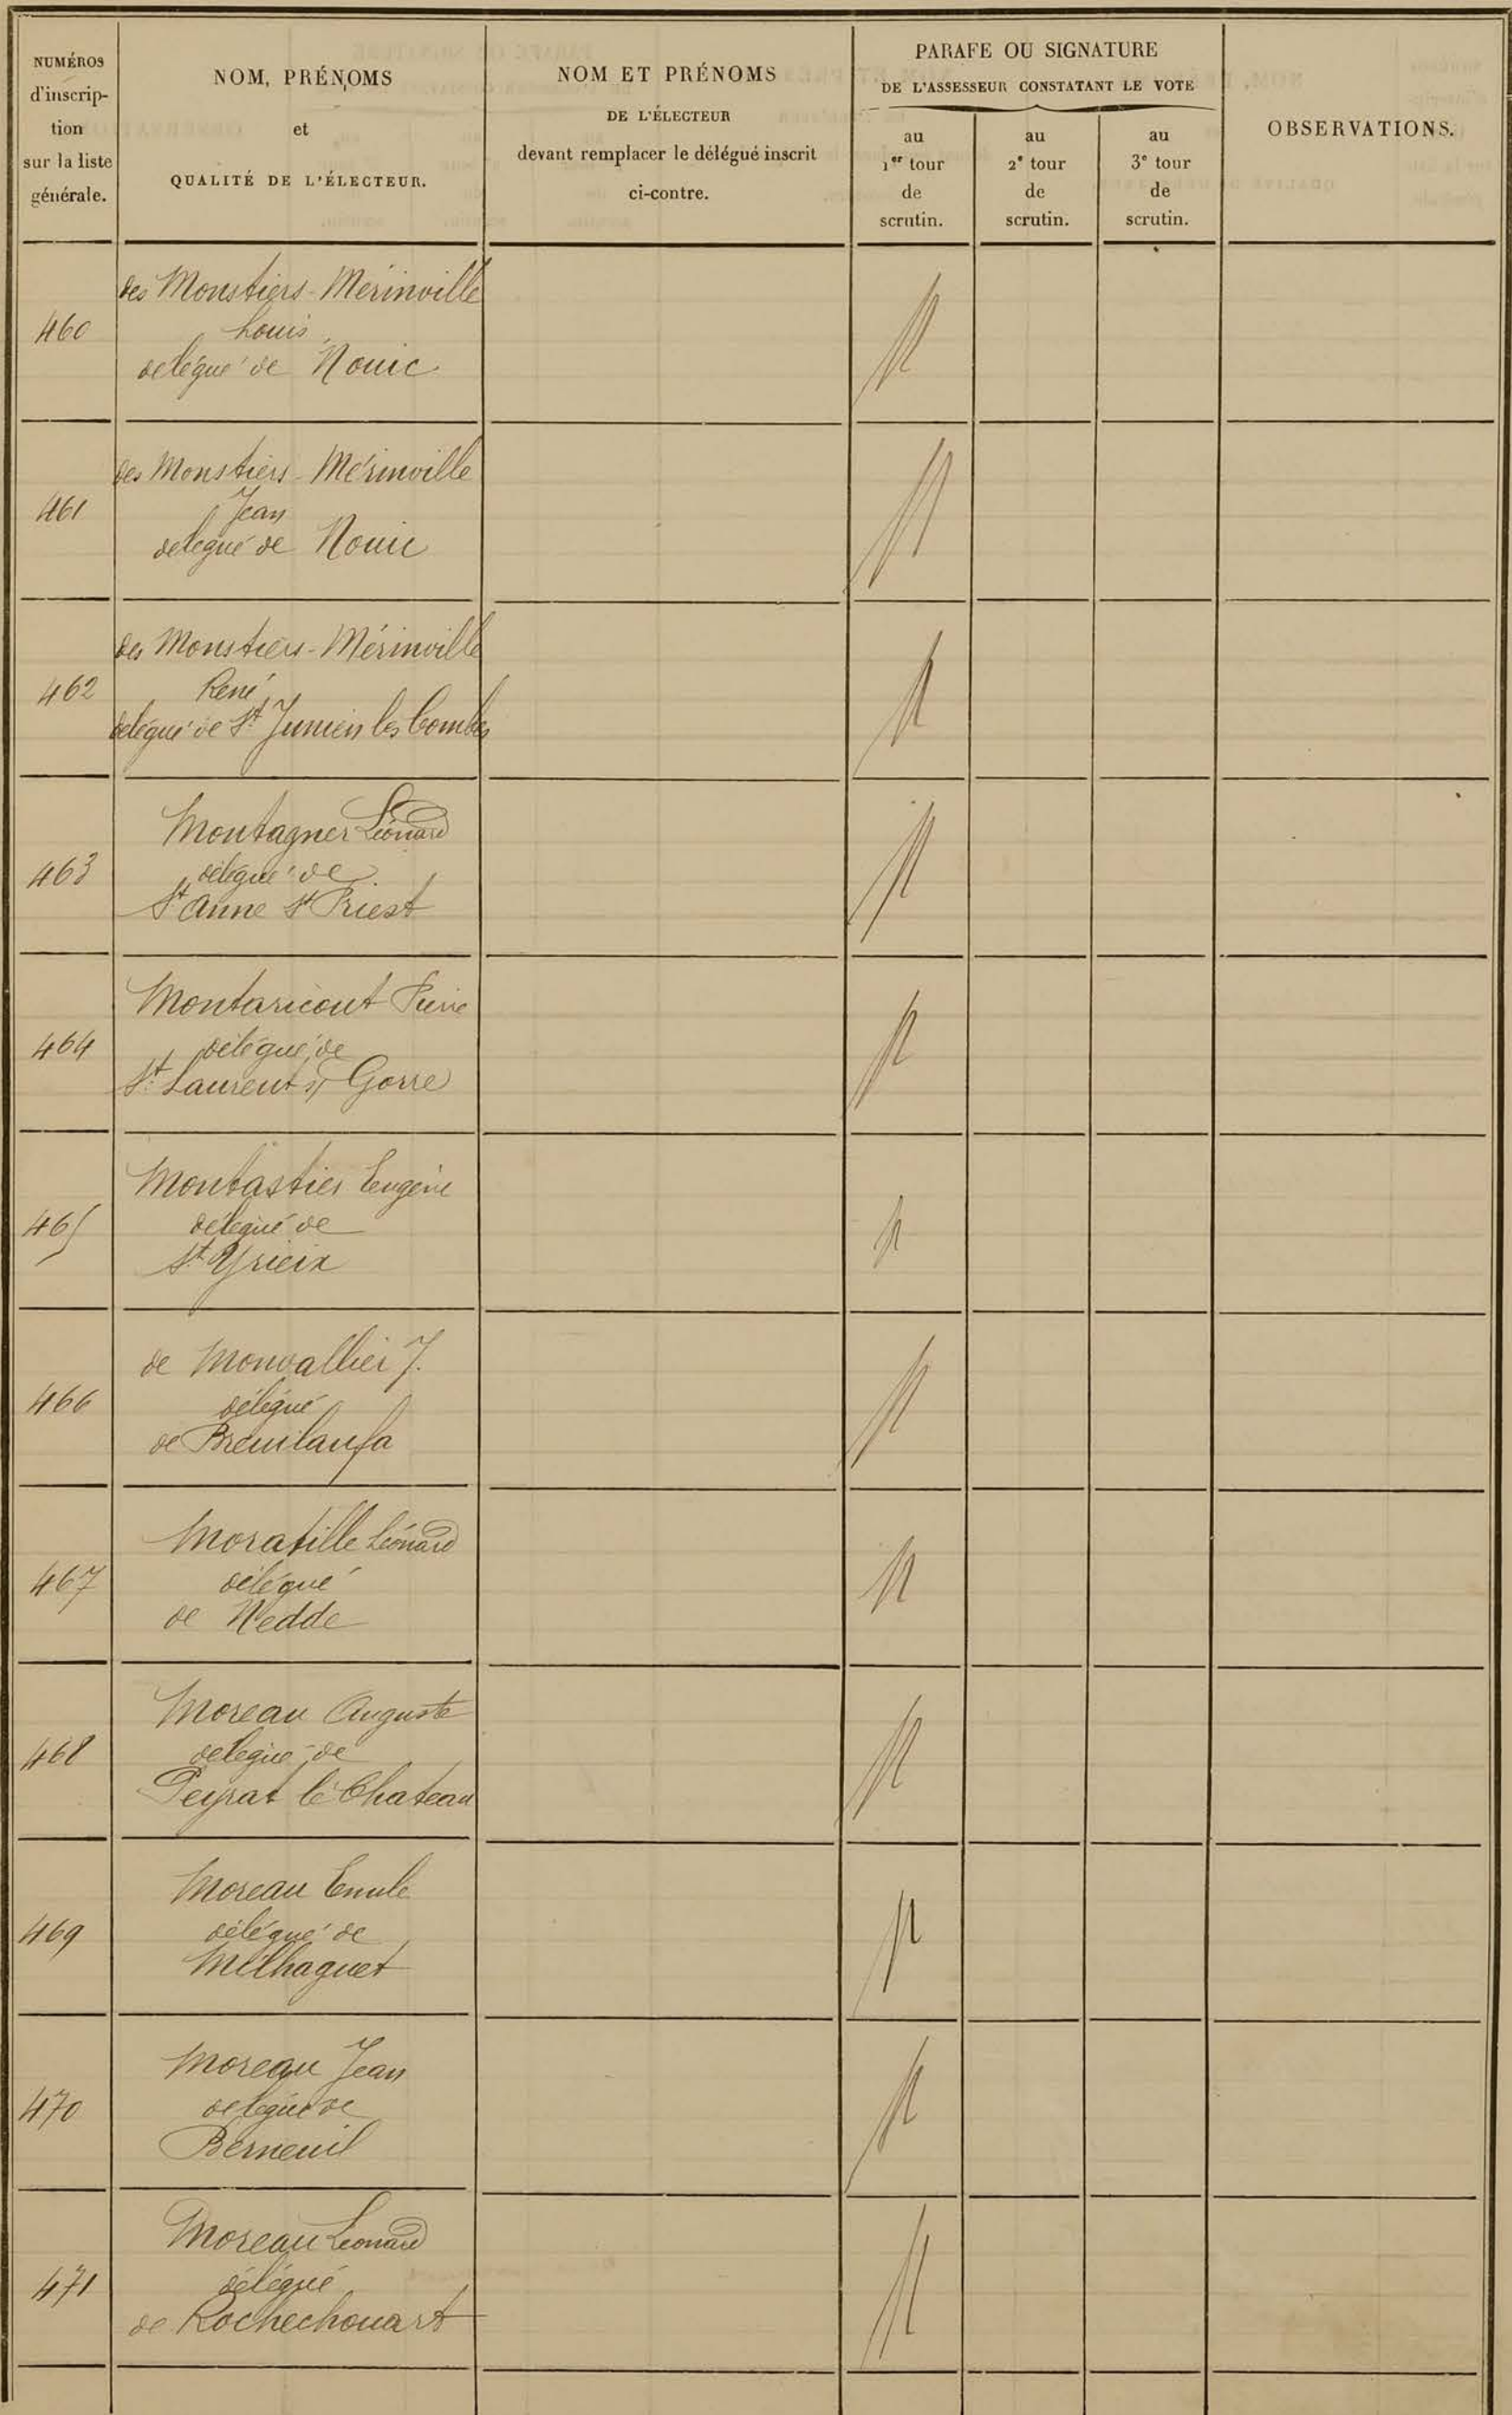 NUMÉROS
d'inscrip-
tion
sur la liste
générale.
NOM, PRÉNOMS
et
QUALITÉ DE L'ÉLECTEUR.
NOM ET PRÉNOMS
DE L'ÉLECTEUR
devant remplacer le délégué inscrit
ci-contre.
PARAFE OU SIGNATURE
DE L'ASSESSEUR CONSTATANT LE VOTE
au
1er tour
de
scrutin.
au
2e tour
de
scrutin.
au
3e tour
de
scrutin.
OBSERVATIONS.
460
des Monstiers-Mérinville
Louis
délégué de Nouic
461
des Monstiers-Mérinville
Jean
délégué de Nouic
462
des Monstiers-Mérinville
René
délégué de St Junien les Combes
463
Montagner Léonard
délégué de
St Anne St Priest
464
Montaricout Pierre
délégué de
St Laurent s/ Gorre
465
Montastier Eugène
délégué de
St Yrieix
466
de Monvallier J.
délégué
de
467
Moratille Léonard
délégué
de Nedde
468
Moreau Auguste
délégué de
Peyrat le Chateau
469
Moreau Emile
délégué de
Milhaguet
470
Moreau Jean
délégué de
Berneuil
471
Moreau Léonard
délégué
de Rochechouart